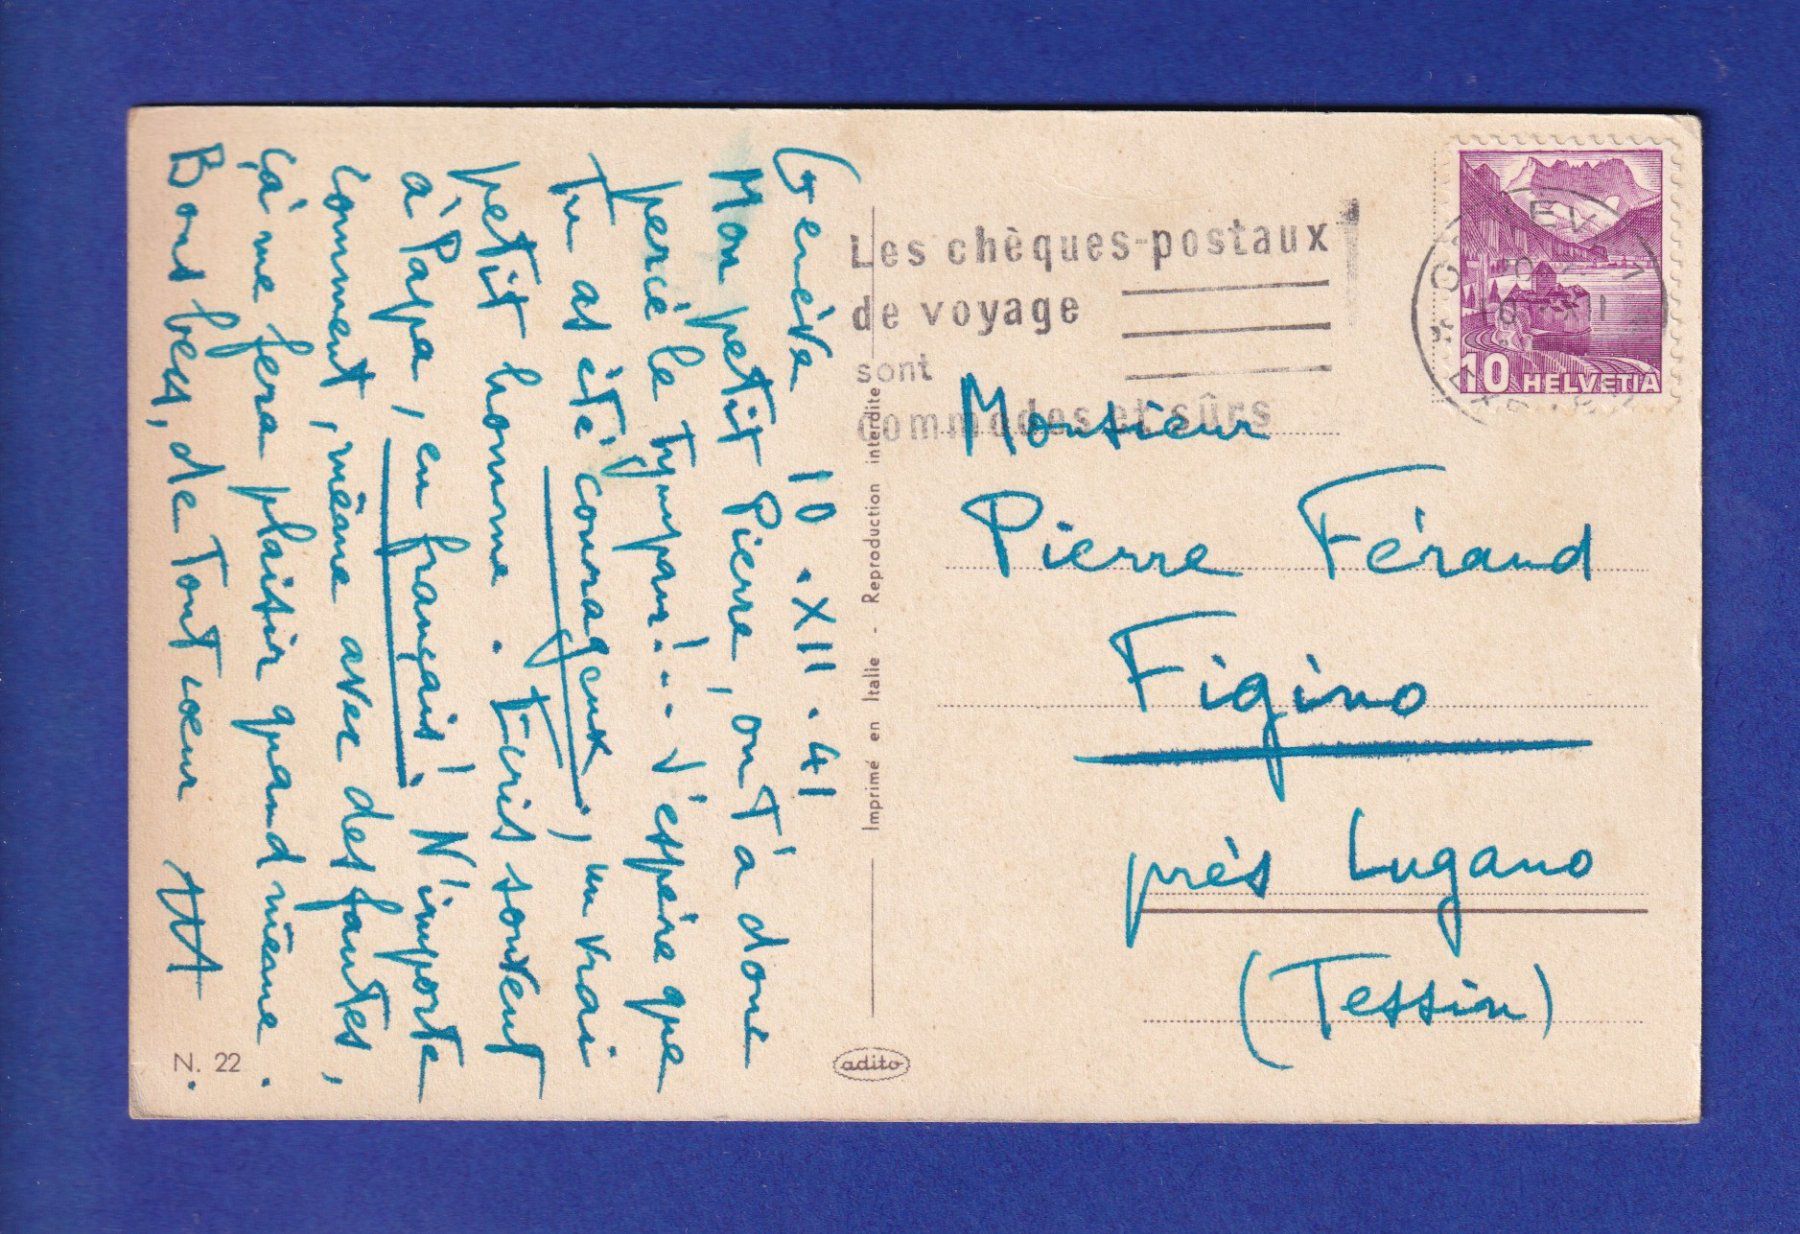 Genève 10.XII.41
Mon petit Pierre, on t'a donc
percé le tympan!... J'espère que
Tu as été courageux, un vrai
petit homme. Ecris souvent
à Papa, en français! N'importe
comment, même avec des fautes,
ça me fera plaisir quand même.
Bons becs, de tout cœur
N. 22
adito
Imprimé en Italie - Reproduction interdite
Les chèques-postaux
de voyage
sont
commodes et sûrs
10 HELVETIA
Monsieur
Pierre Féraud
Figino
près Lugano
(Tessin)